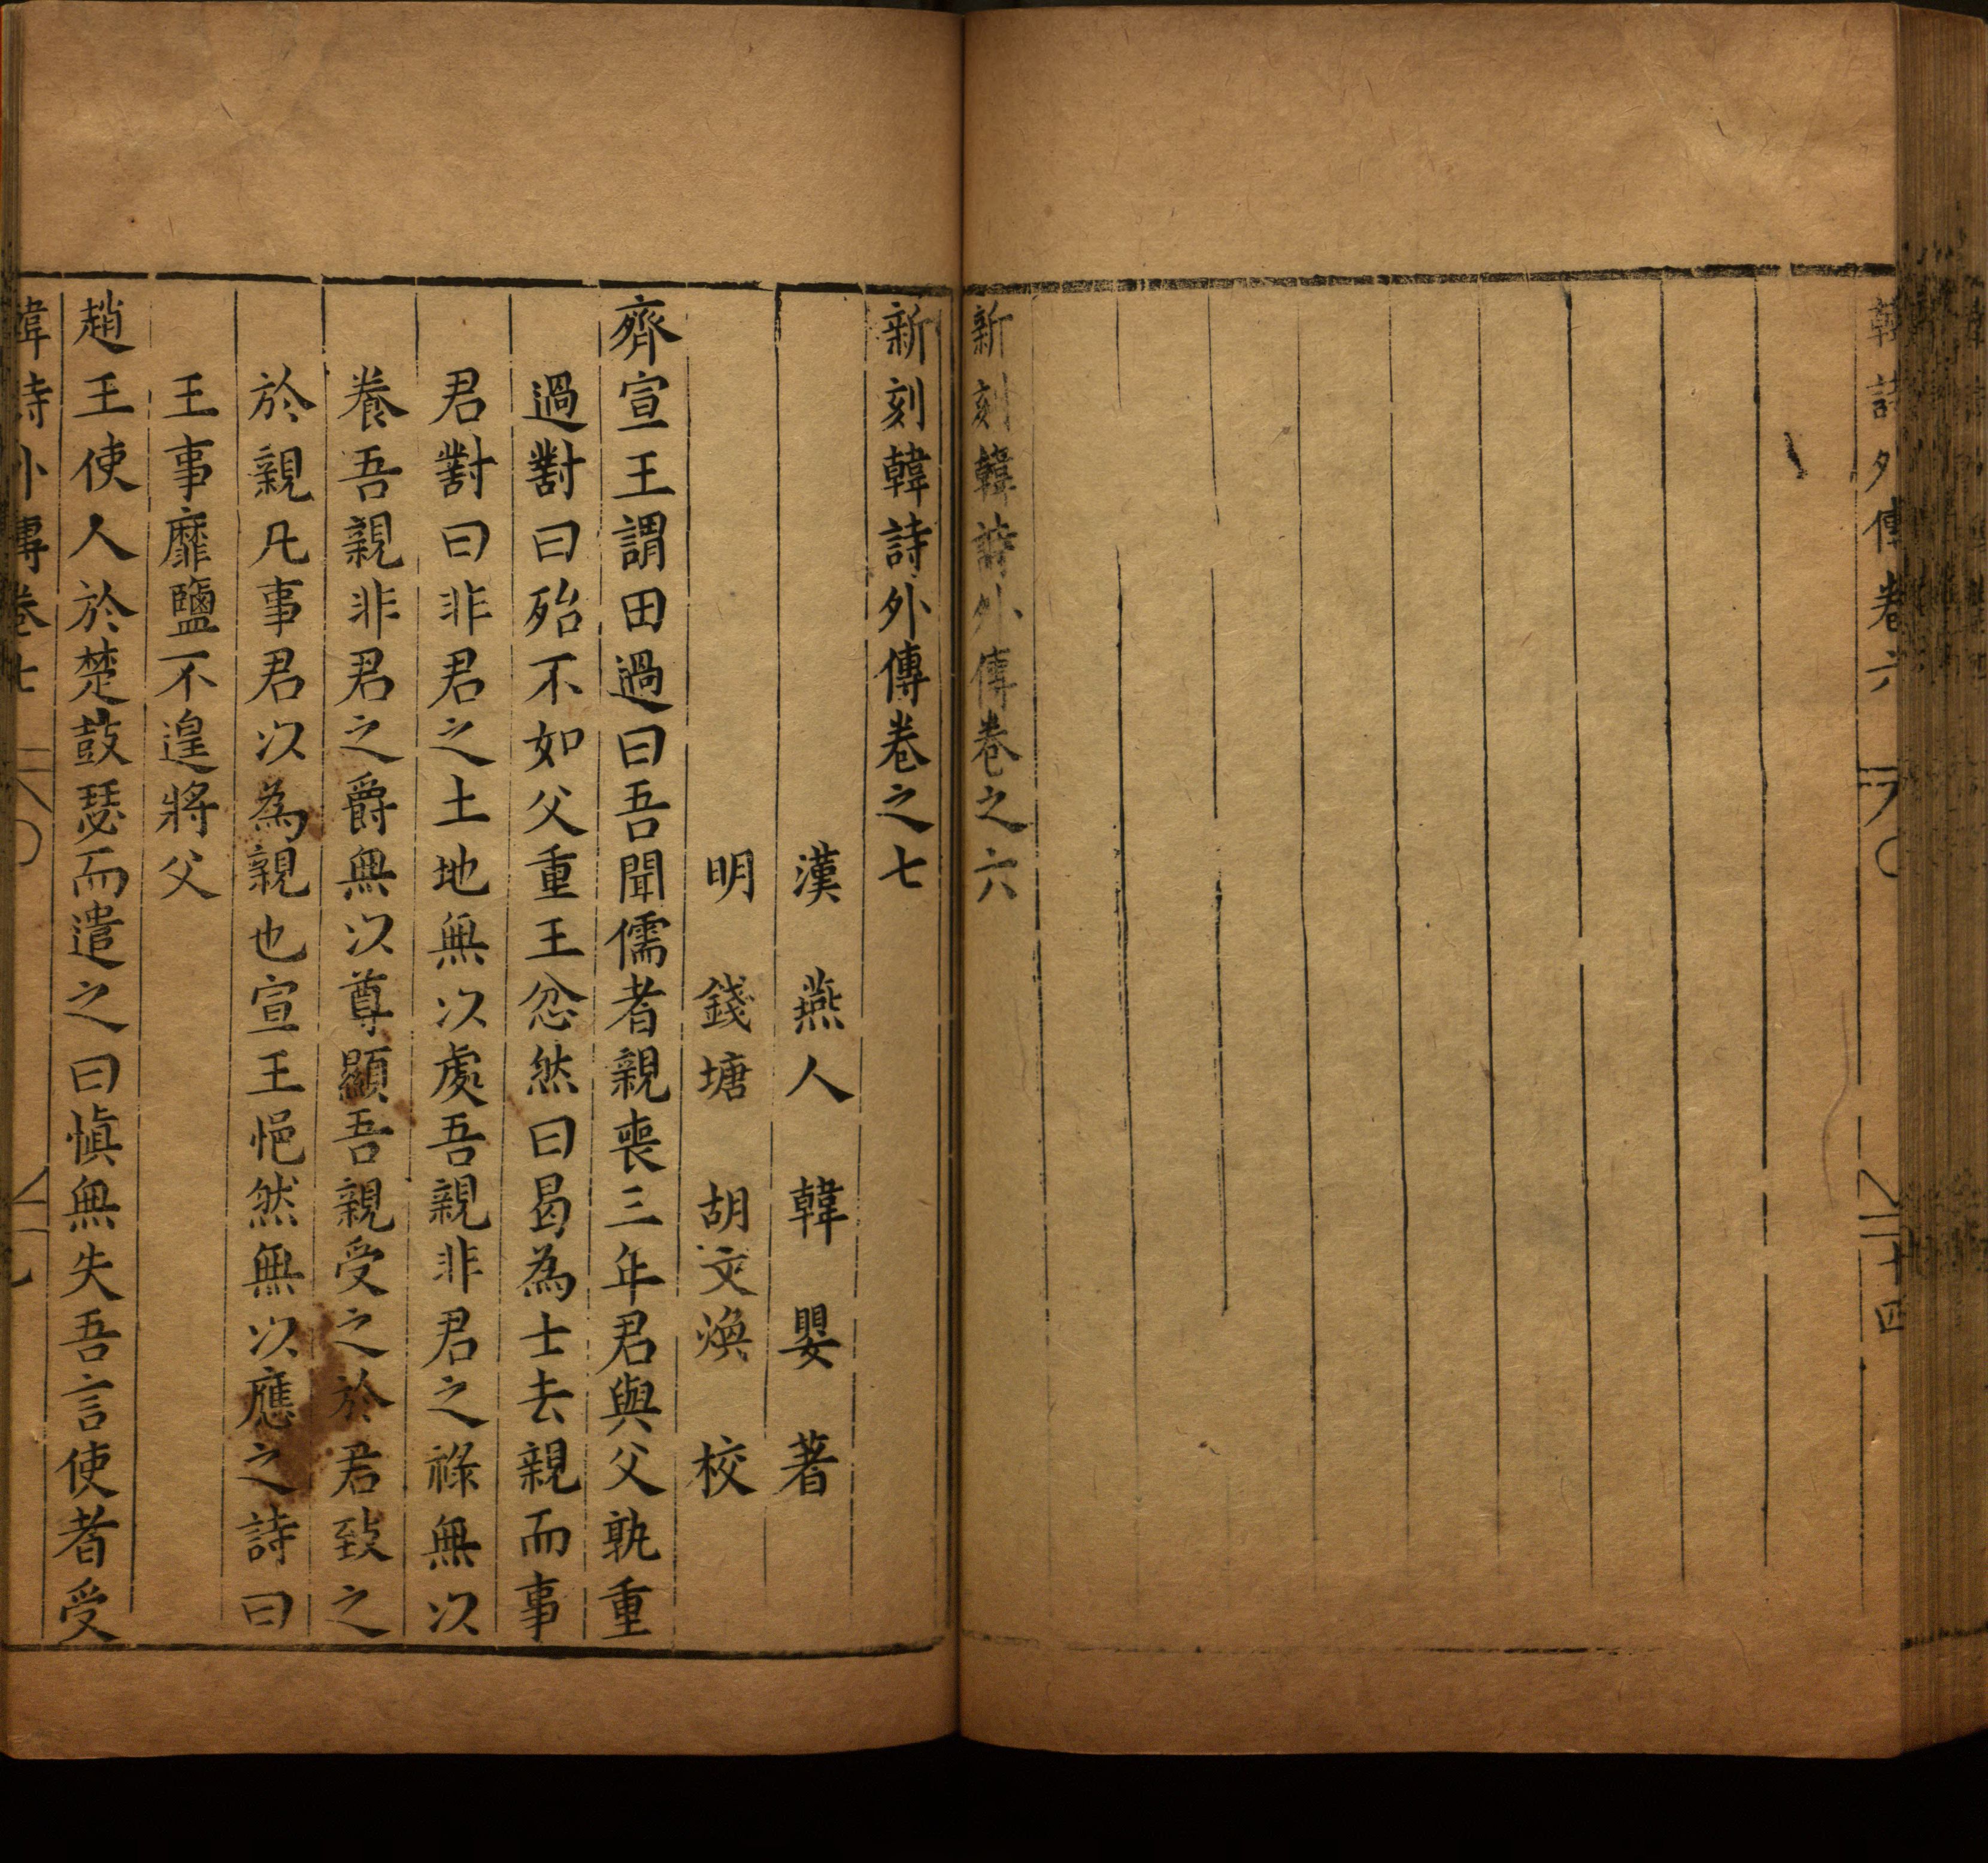 韓詩外傳卷六
二十四
新刻韓詩外傳卷之六
新刻韓詩外傳卷之七
漢 燕人 韓嬰 著
明 錢塘 胡文煥 校
齊宣王謂田過曰吾聞儒者親喪三年君與父孰重
過對曰殆不如父重王忿然曰曷為士去親而事
君對曰非君之土地無以處吾親非君之祿無以
養吾親非君之爵無以尊顯吾親受之於君致之
於親凡事君以為親也宣王悒然無以應之詩曰
王事靡鹽不遑將父
趙王使人於楚鼓瑟而遣之曰慎無失吾言使者受
韓詩外傳卷七